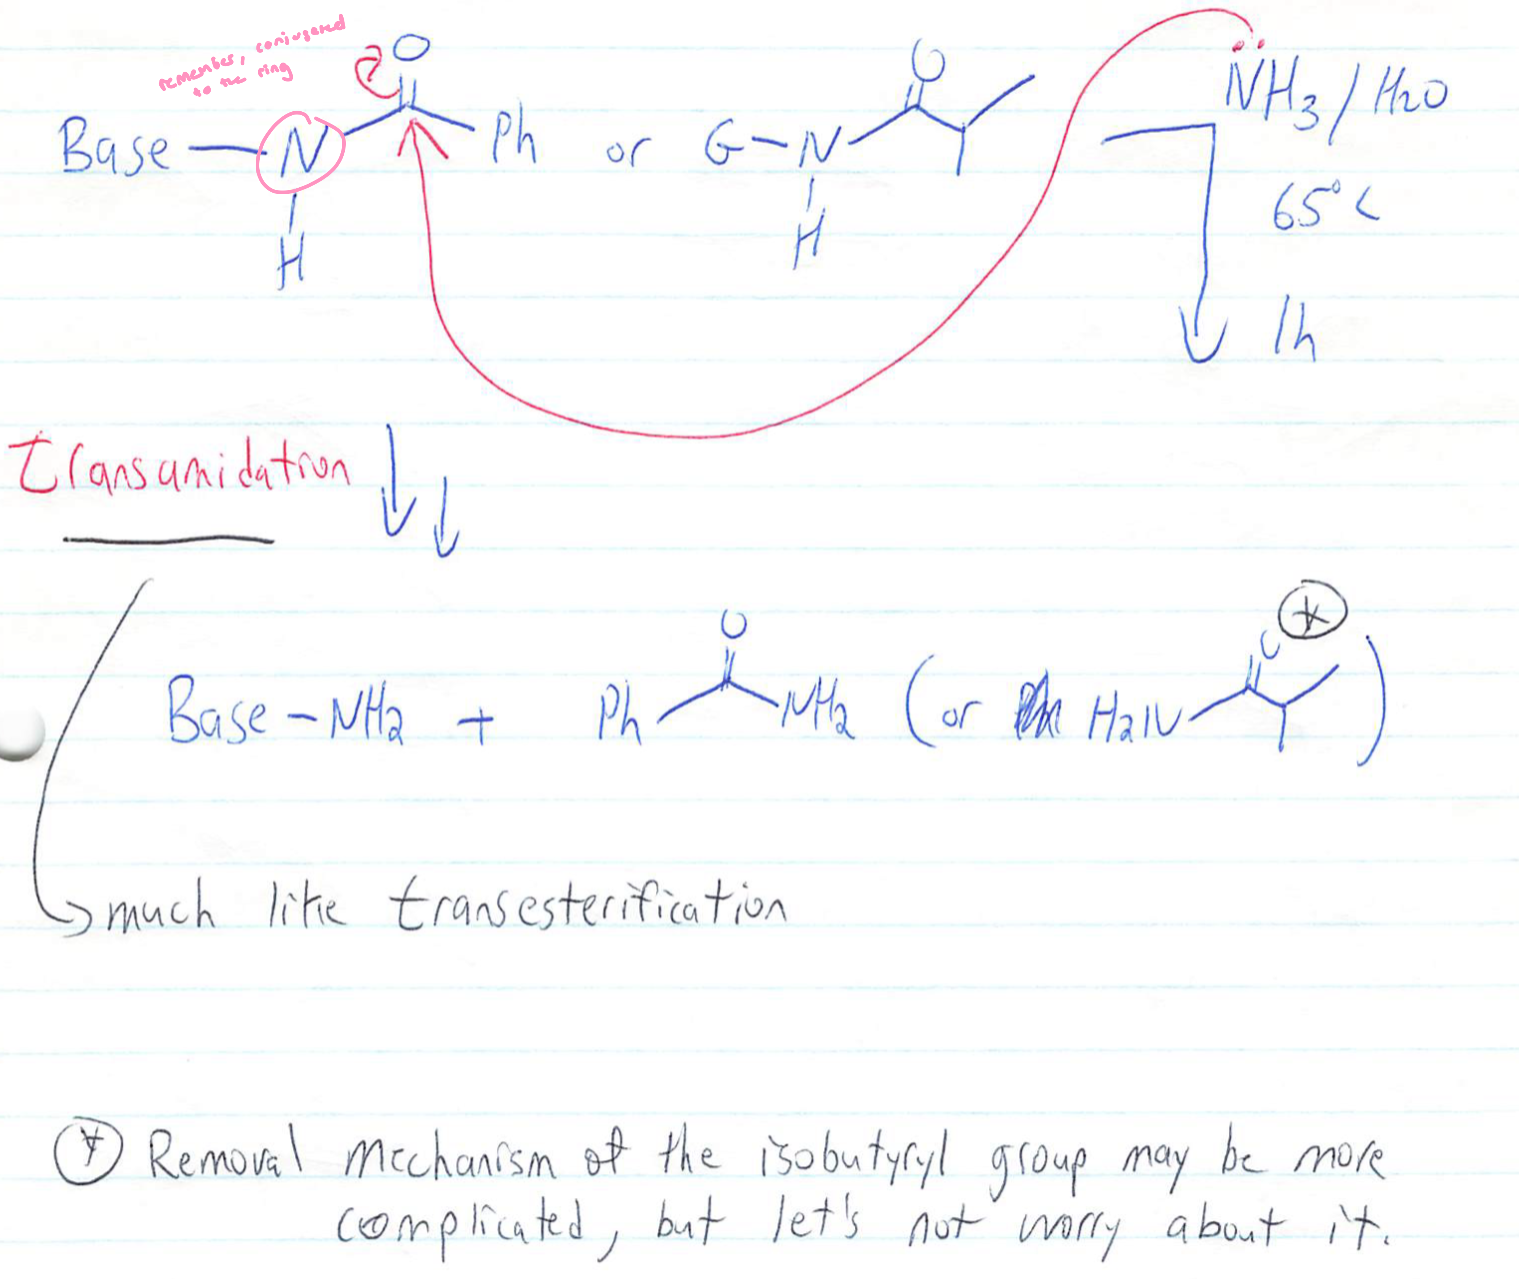 remember, conjugated
to the ring
O
O
NH3/H2O
Base
N
Ph
or
G-N
H
H
65°C
1h
transamidation
O
O
*
Base-NH2 + Ph NH2 (or H2N )
much like transesterification
* Removal mechanism of the isobutyryl group may be more
complicated, but let's not worry about it.